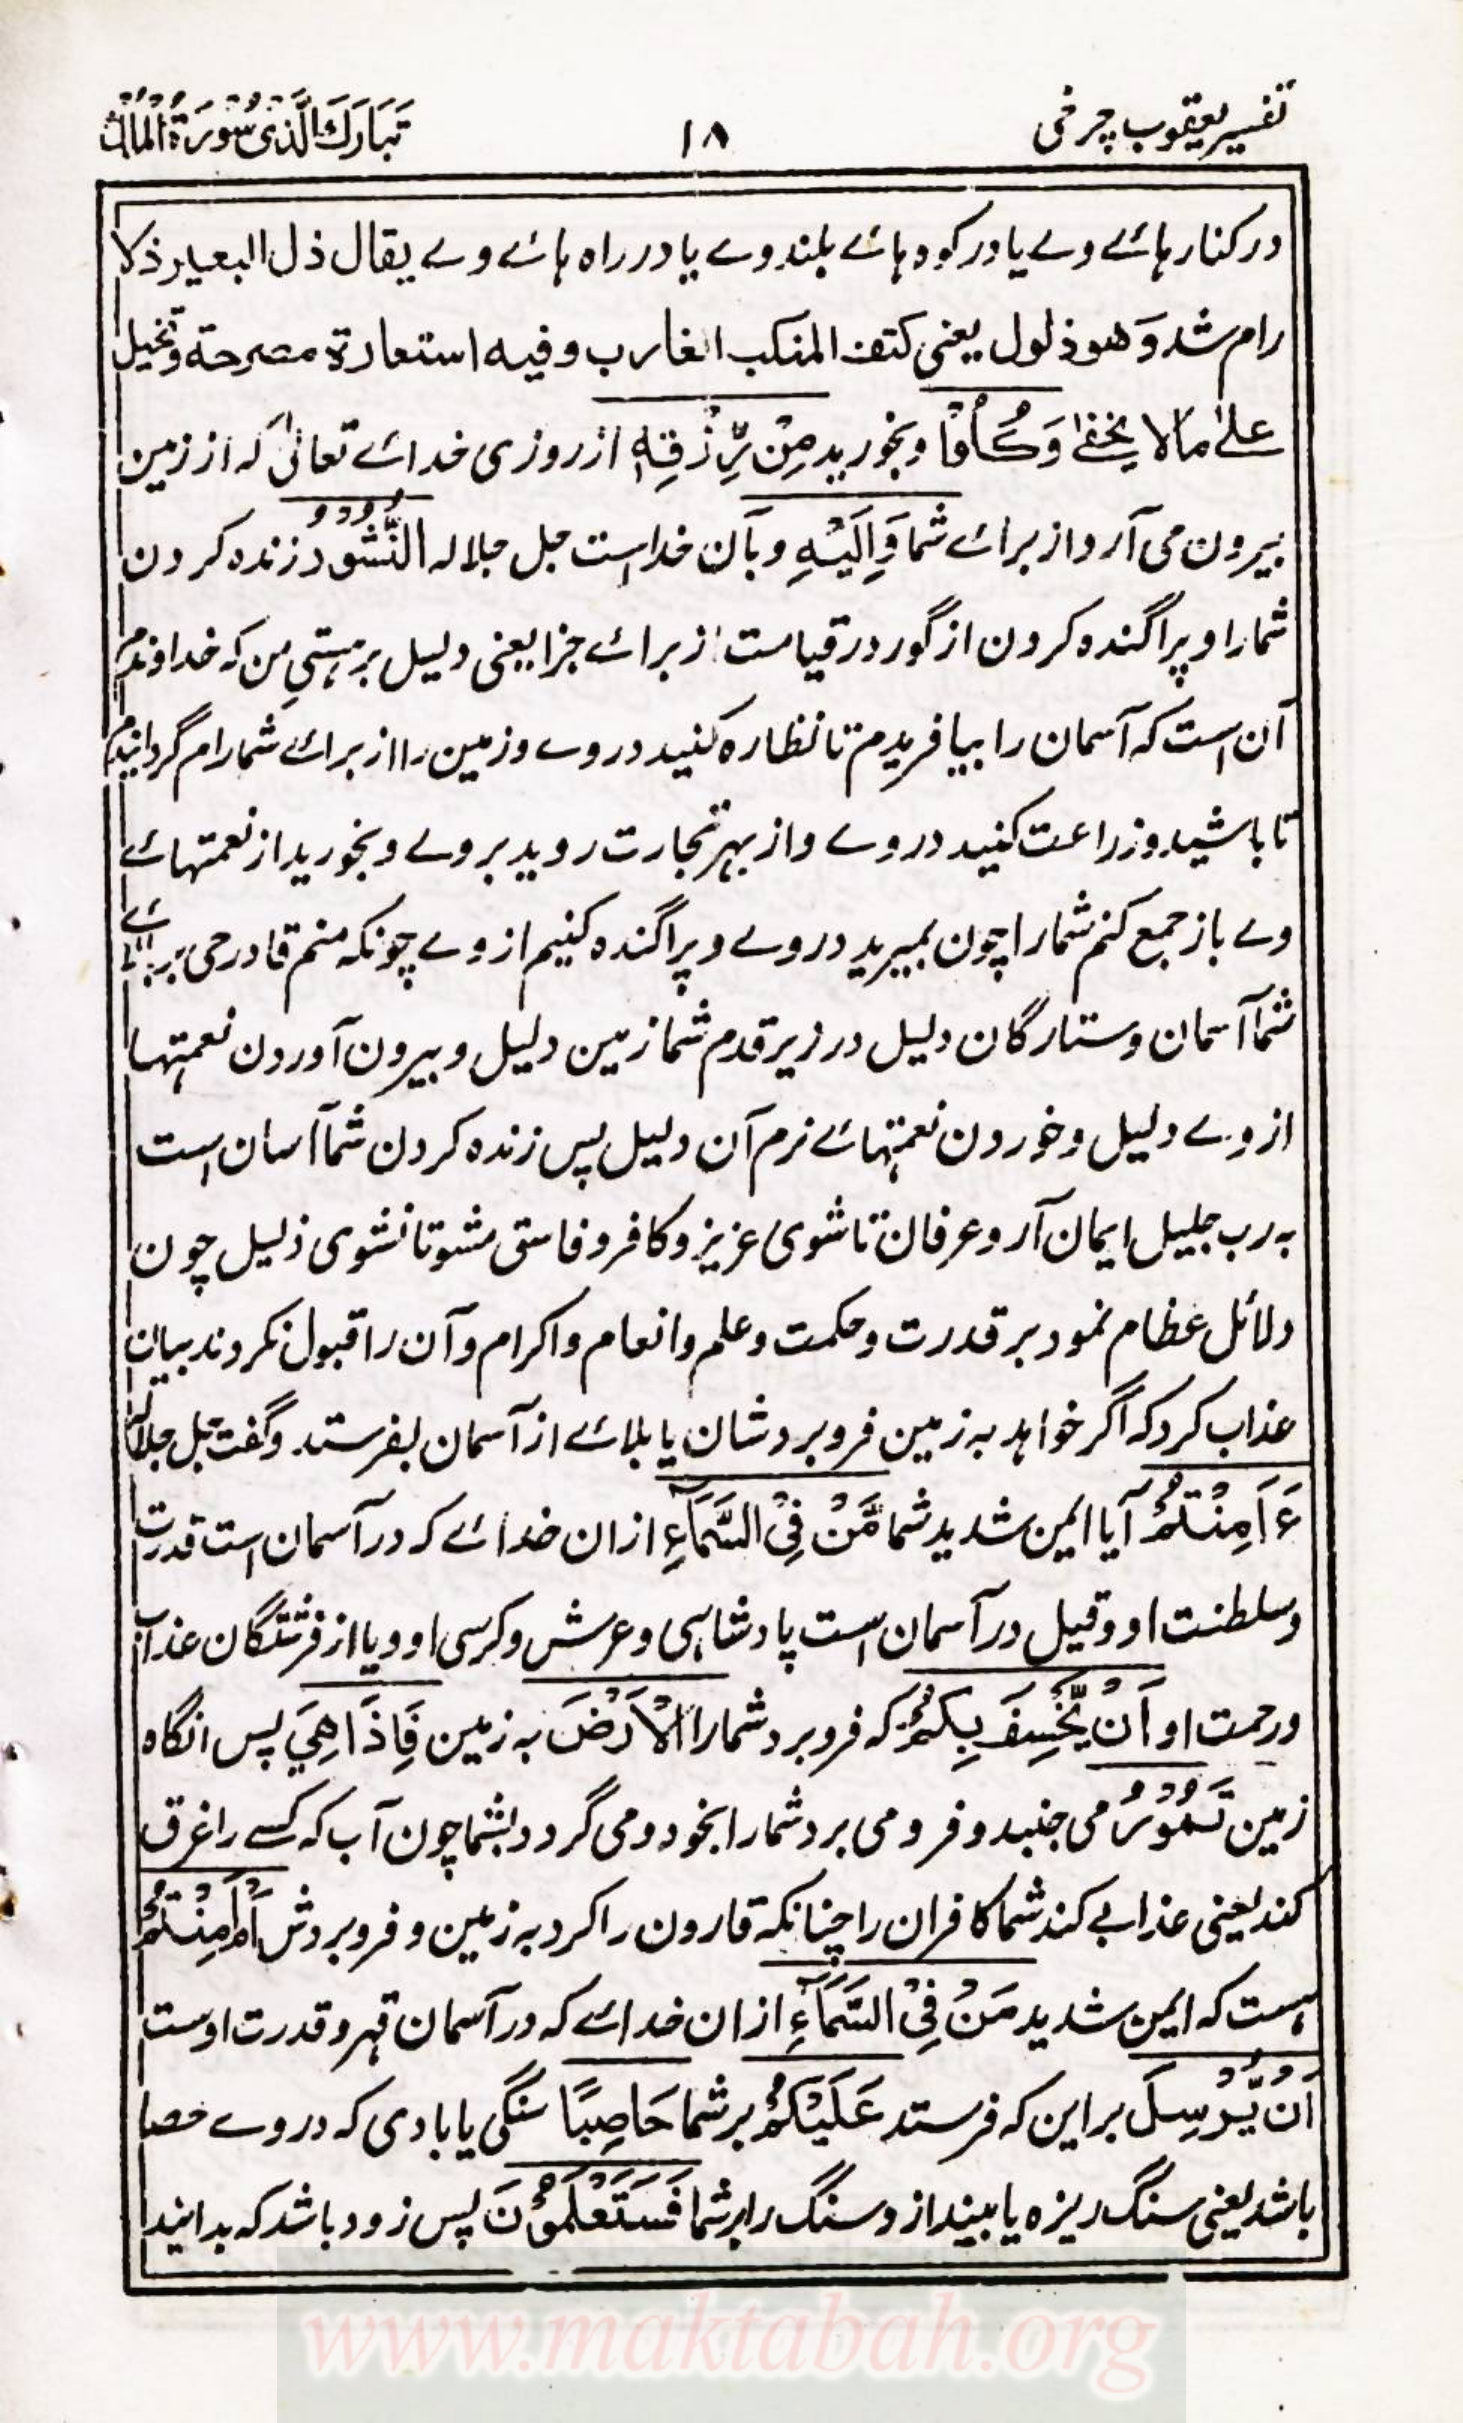 تفسیر یعقوب چرخی
۱۸
تَبَارَكَ الَّذِیْ سُوْرَةُ الْمُلْكِ
در کنار ہائے وے یا در کوہ ہائے بلند وے یا در راہ ہائے وے یقال ذل البعیر ذلا
رام شد وَهو ذلول یعنی کتف المنکب الغارب وفیه استعارة مصرحة وتخیل
علیٰ مالا یخفیٰ وَكُلُوْا وبخورید مِنْ رِّزْقِهٖ از روزی خدائے تعالیٰ کہ از زمین
بیرون می آرد از برائے شما وَاِلَيْهِ وبآن خداست جل جلالہ النُّشُوْرُ زندہ کردن
شمارا و پراگندہ کردن از گور در قیامت از برائے جزا یعنی دلیل بر ہستیِ من کہ خداوندم
آن است کہ آسمان را بیافریدم تا نظارہ کنید در وے وزمین را از برائے شما رام گردانیدم
تا باشید وزراعت کنید در وے واز بہر تجارت روید بر وے وبخورید از نعمتہائے
وے باز جمع کنم شمارا چون بمیرید در وے و پراگندہ کنیم از وے چونکہ منم قادر حی بربالائے
شما آسمان وستارگان دلیل در زیر قدم شما زمین دلیل و بیرون آوردن نعمتہا
از وے دلیل وخوردن نعمتہائے نرم آن دلیل پس زندہ کردن شما آسان است
بہ رب جلیل ایمان آر وعرفان تا شوی عزیز و کافر و فاسق مشو تا نشوی ذلیل چون
دلائل عظام نمود بر قدرت وحکمت وعلم وانعام واکرام وآن را قبول نکردند بیان
عذاب کرد کہ اگر خواہد بہ زمین فرو برد شان یا بلائے از آسمان بفرستد وگفت جل جلالہ
ءَاَمِنْتُمْ آیا ایمن شدید شما مَّنْ فِی السَّمَآءِ ازان خدائے کہ در آسمان است قدرت
وسلطنت او وقیل در آسمان است پادشاہی وعرش و کرسی او ویا از فرشتگان عذاب
ورحمت او اَنْ یَّخْسِفَ بِكُمُ کہ فرو برد شمارا الْاَرْضَ بہ زمین فَاِذَا هِیَ پس انگاہ
زمین تَمُوْرُ می جنبد و فرو می برد شمارا بخود ومی گردد بشما چون آب کہ کسے را غرق
کند یعنی عذابے کند شما کافران را چنانکہ قارون را کرد بہ زمین و فرو بردش اَمْ اَمِنْتُمْ
ہست کہ ایمن شدید مَّنْ فِی السَّمَآءِ ازان خدائے کہ در آسمان قہر و قدرت اوست
اَنْ یُّرْسِلَ بر این کہ فرستد عَلَیْكُمْ بر شما حَاصِبًا سنگی یا بادی کہ در وے حصا
باشد یعنی سنگ ریزہ یا بیندازد سنگ را بر شما فَسَتَعْلَمُوْنَ پس زود باشد کہ بدانید
www.maktabah.org